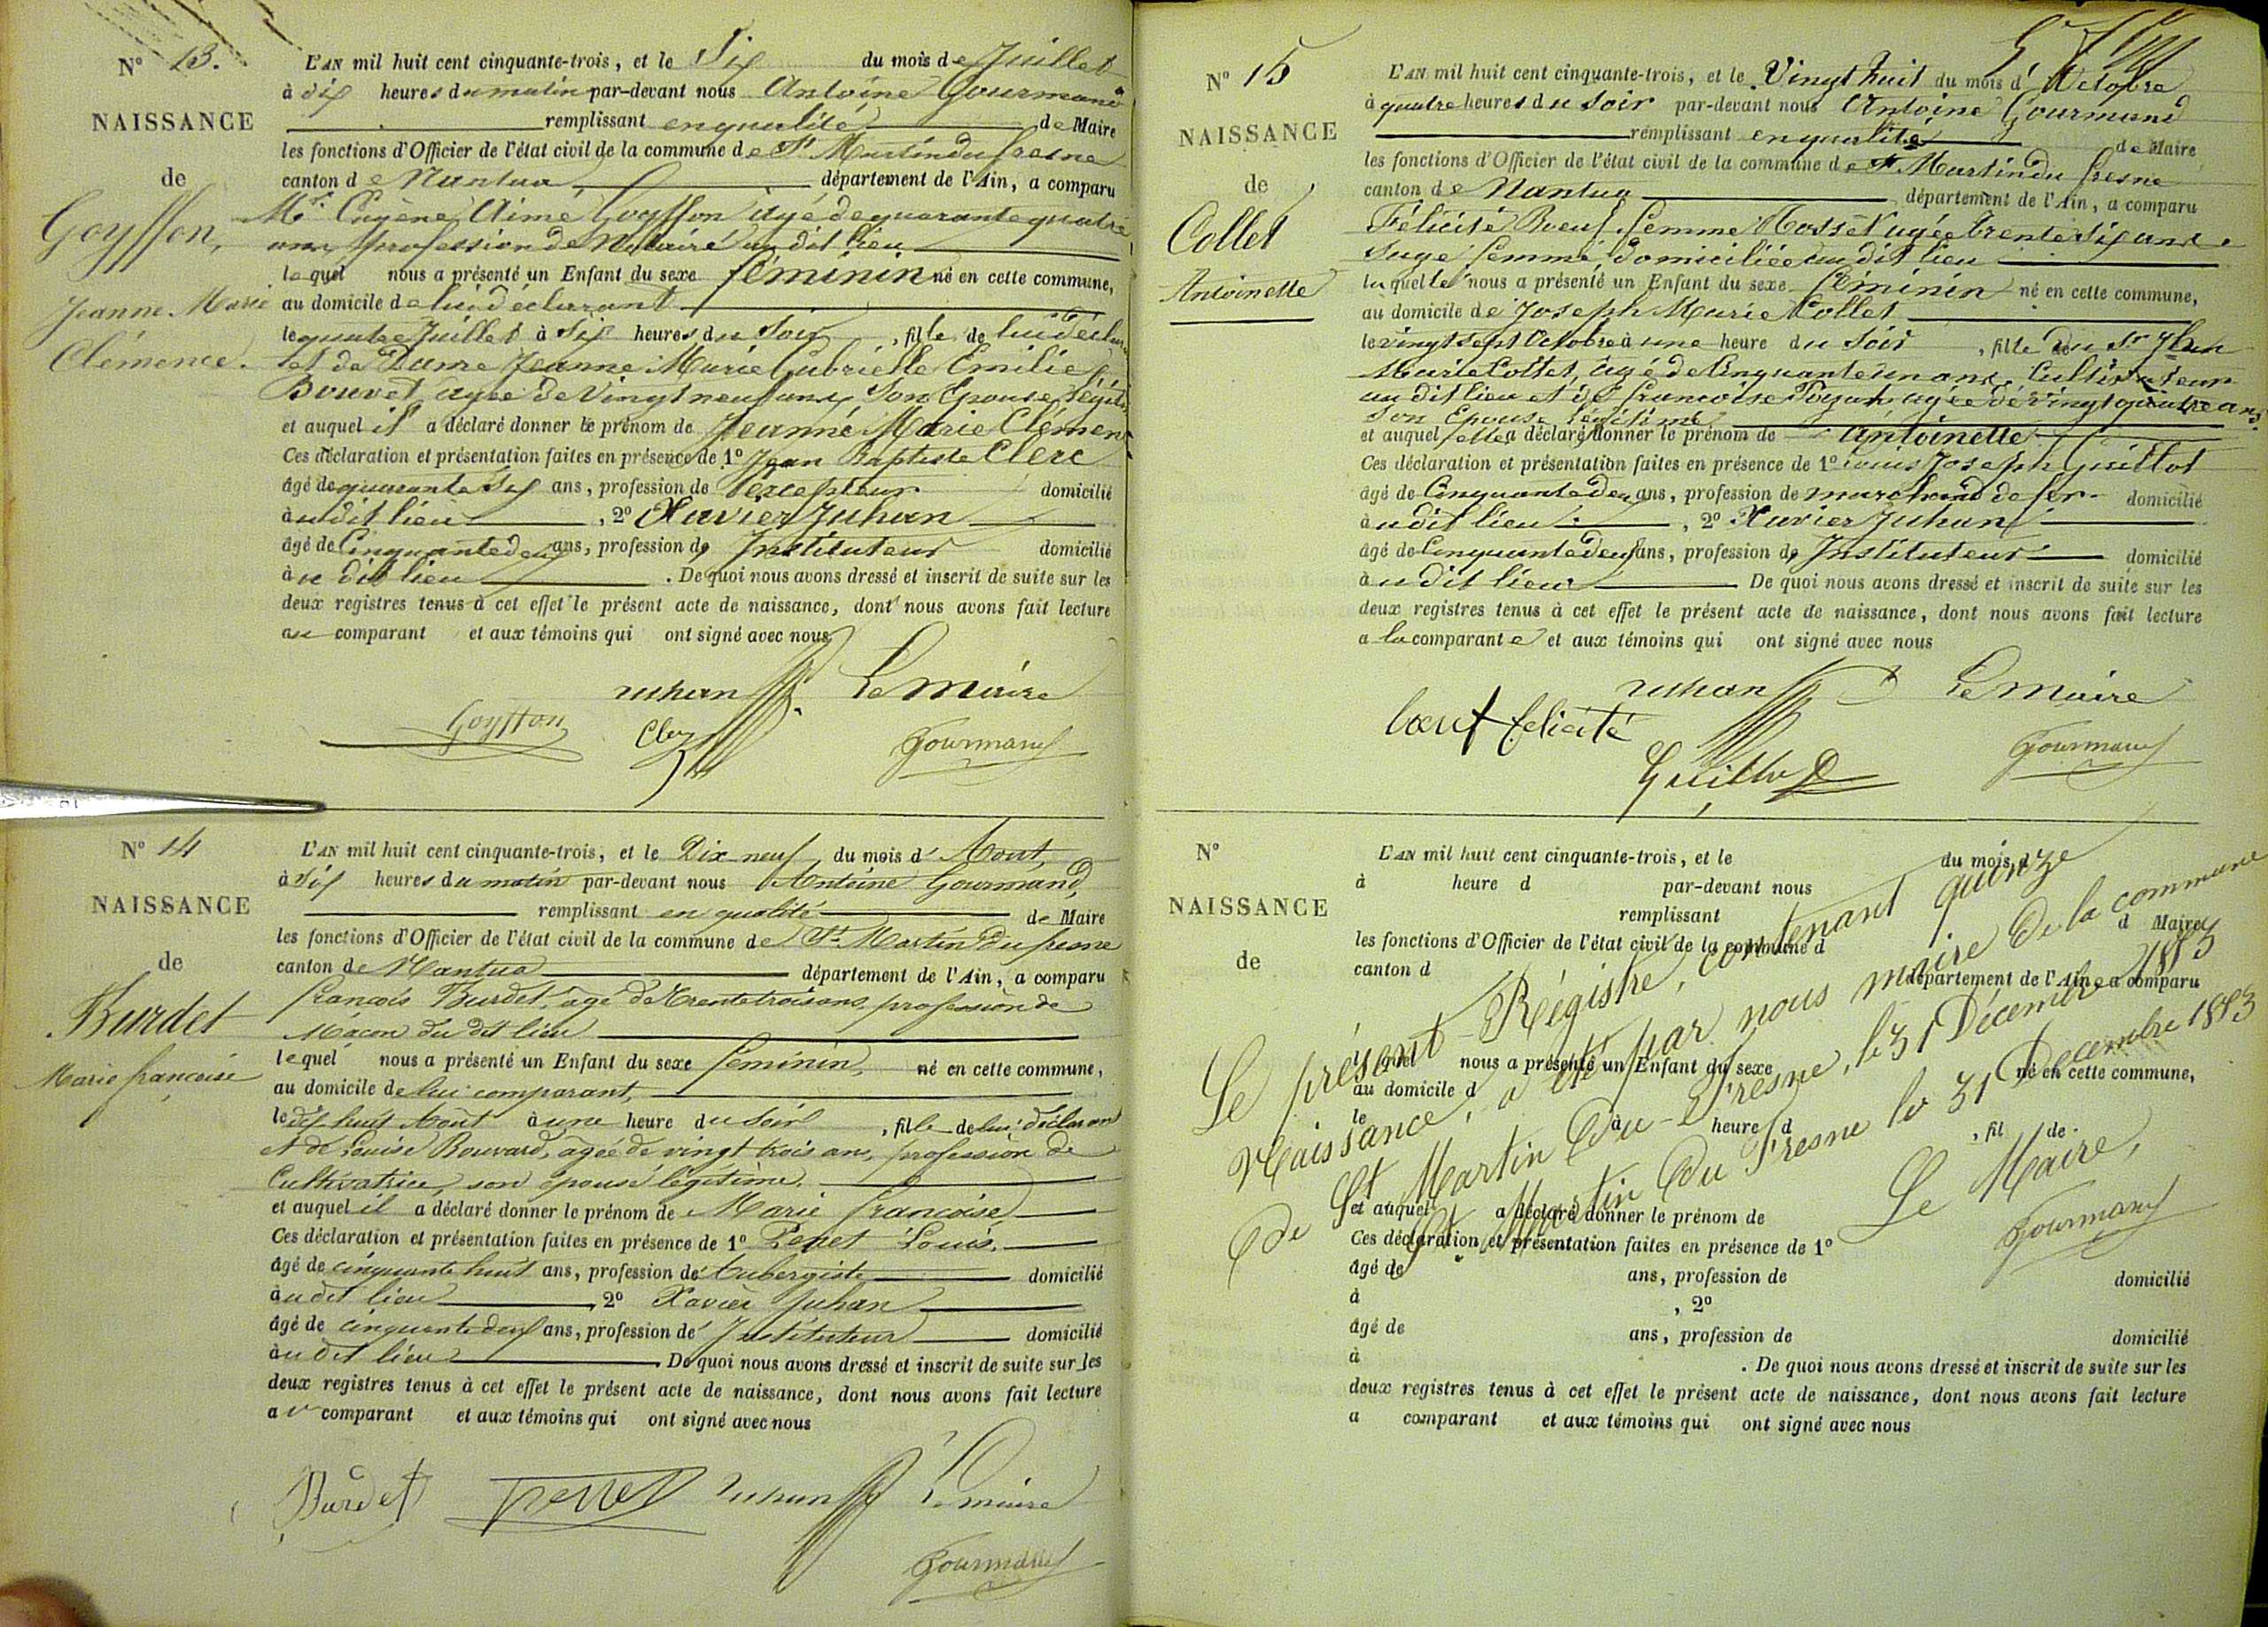 N° 13.
NAISSANCE
de
Goyffon,
Jeanne Marie
Clémence.
L'AN mil huit cent cinquante-trois, et le Six du mois de Juillet
à dix heures du matin par-devant nous Antoine Gourmand
remplissant en qualité de Maire
les fonctions d'Officier de l'état civil de la commune de St Martin du fresne
canton de Nantua département de l'Ain, a comparu
Mr. Eugène Aimé Goyffon âgé de quarante quatre
ans, profession de Notaire au dit lieu
lequel nous a présenté un Enfant du sexe féminin né en cette commune,
au domicile de lui déclarant
le quatre Juillet à Six heures du Soir, fille de lui déclar
et de Dame Jeanne Marie Gabrielle Emilie
Bouvet, âgée de Vingt neuf ans, Son Epouse légit
et auquel il a déclaré donner le prénom de Jeanne Marie Clémen
Ces déclaration et présentation faites en présence de 1° Jean Baptiste Clerc
âgé de quarante Six ans, profession de Percepteur domicilié
au dit lieu, 2° Xavier Juhan
âgé de Cinquante deux ans, profession de Instituteur domicilié
au dit lieu. De quoi nous avons dressé et inscrit de suite sur les
deux registres tenus à cet effet le présent acte de naissance, dont nous avons fait lecture
au comparant et aux témoins qui ont signé avec nous
Juhan Le Maire
Goyffon Clerc Gourmand
N° 14
NAISSANCE
de
Burdet
Marie françoise
L'AN mil huit cent cinquante-trois, et le Dix neuf du mois d'Aout,
à Six heures du matin par-devant nous Antoine Gourmand,
remplissant en qualité de Maire
les fonctions d'Officier de l'état civil de la commune de St Martin Du fresne
canton de Nantua département de l'Ain, a comparu
françois Burdet, âgé de trente trois ans, profession de
Maçon du dit lieu
lequel nous a présenté un Enfant du sexe féminin, né en cette commune,
au domicile de lui comparant,
le dix huit Aout à une heure du Soir, fille de lui déclarant
et de Louise Bouvard, âgée de vingt trois ans, profession de
Cultivatrice, son épouse légitime.
et auquel il a déclaré donner le prénom de Marie françoise,
Ces déclaration et présentation faites en présence de 1° Perret Louis,
âgé de cinquante huit ans, profession de Aubergiste domicilié
au dit lieu, 2° Xavier Juhan
âgé de cinquante deux ans, profession de Instituteur domicilié
au dit lieu De quoi nous avons dressé et inscrit de suite sur les
deux registres tenus à cet effet le présent acte de naissance, dont nous avons fait lecture
au comparant et aux témoins qui ont signé avec nous
Burdet Perret Juhan Le Maire
Gourmand
N° 15
NAISSANCE
de
Collet
Antoinette
L'AN mil huit cent cinquante-trois, et le Vingt huit du mois d'Octobre
à quatre heures du Soir par-devant nous Antoine Gourmand
remplissant en qualité de Maire
les fonctions d'Officier de l'état civil de la commune de St Martin du fresne
canton de Nantua département de l'Ain, a comparu
Félicité Boeuf femme âgée trente Six ans
Sage femme domiciliée au dit lieu
laquelle nous a présenté un Enfant du sexe féminin né en cette commune,
au domicile de Joseph Marie Collet
le vingt sept Octobre à une heure du Soir, fille du Sr
Marie Collet, âgé de Cinquante un ans, Cultivateur
au dit lieu et de françoise âgée de vingt quatre ans
Son Epouse légitime
et auquel elle a déclaré donner le prénom de Antoinette
Ces déclaration et présentation faites en présence de 1° Louis Joseph Guillot
âgé de Cinquante deux ans, profession de marchand de fer domicilié
au dit lieu, 2° Xavier Juhan
âgé de Cinquante deux ans, profession de Instituteur domicilié
au dit lieu De quoi nous avons dressé et inscrit de suite sur les
deux registres tenus à cet effet le présent acte de naissance, dont nous avons fait lecture
a la comparante et aux témoins qui ont signé avec nous
Juhan Le Maire
boeuf felicité Guillot Gourmand
N°
NAISSANCE
de
L'AN mil huit cent cinquante-trois, et le du mois d
à heure d par-devant nous
remplissant d Maire
les fonctions d'Officier de l'état civil de la commune d
canton d département de l'Ain, a comparu
l quel nous a présenté un Enfant du sexe né en cette commune,
au domicile d
le à heure d, fil de
et auquel a déclaré donner le prénom de
Ces déclaration et présentation faites en présence de 1°
âgé de ans, profession de domicilié
à, 2°
âgé de ans, profession de domicilié
à. De quoi nous avons dressé et inscrit de suite sur les
deux registres tenus à cet effet le présent acte de naissance, dont nous avons fait lecture
a comparant et aux témoins qui ont signé avec nous
Le présent Régistre, contenant quinze
Naissance, a été par nous maire de la commune
de St Martin Du Fresne, le 31 Décembre 1853
St Martin Du Fresne le 31 Decembre 1853
Le Maire,
Gourmand